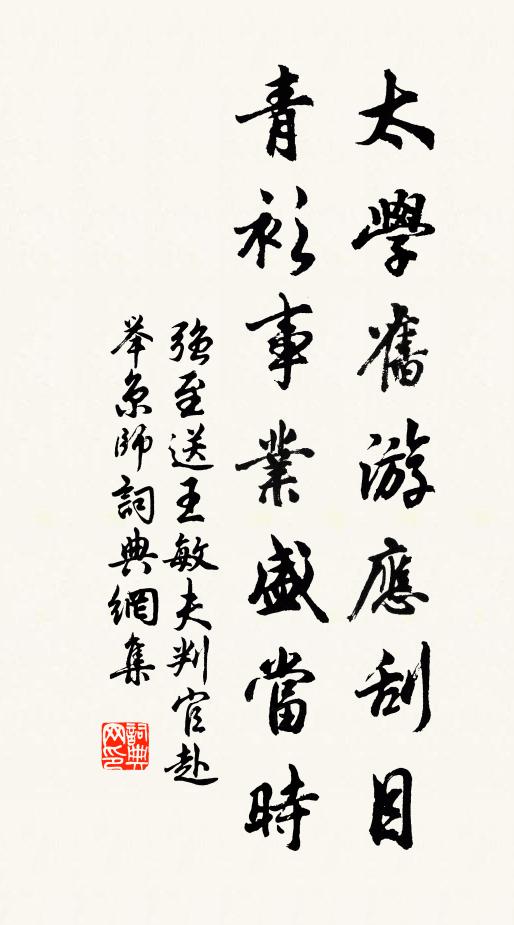 太學舊游應刮目
青衫事業盛當時
強至送王敏夫判官赴
举京師詞典網集
詞典网印